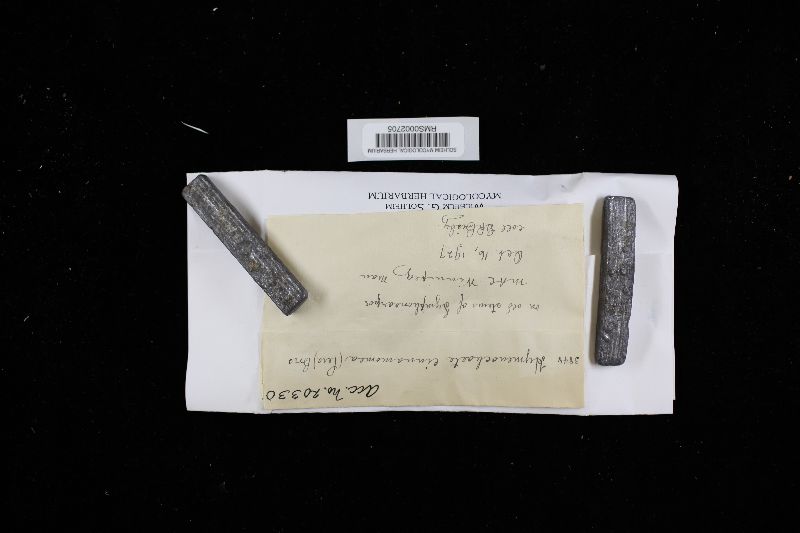 SOLHEIM MYCOLOGICAL HERBARIUM
RMS0002705
WILHELM G. SOLHEIM
MYCOLOGICAL HERBARIUM
Acc. No. 20330
Hymenochaete cinnamomea (Pers) Bres
on old stems of Symphoricarpos
M.A.C. Winnipeg, Man
Oct. 16, 1927
coll G R Bisby